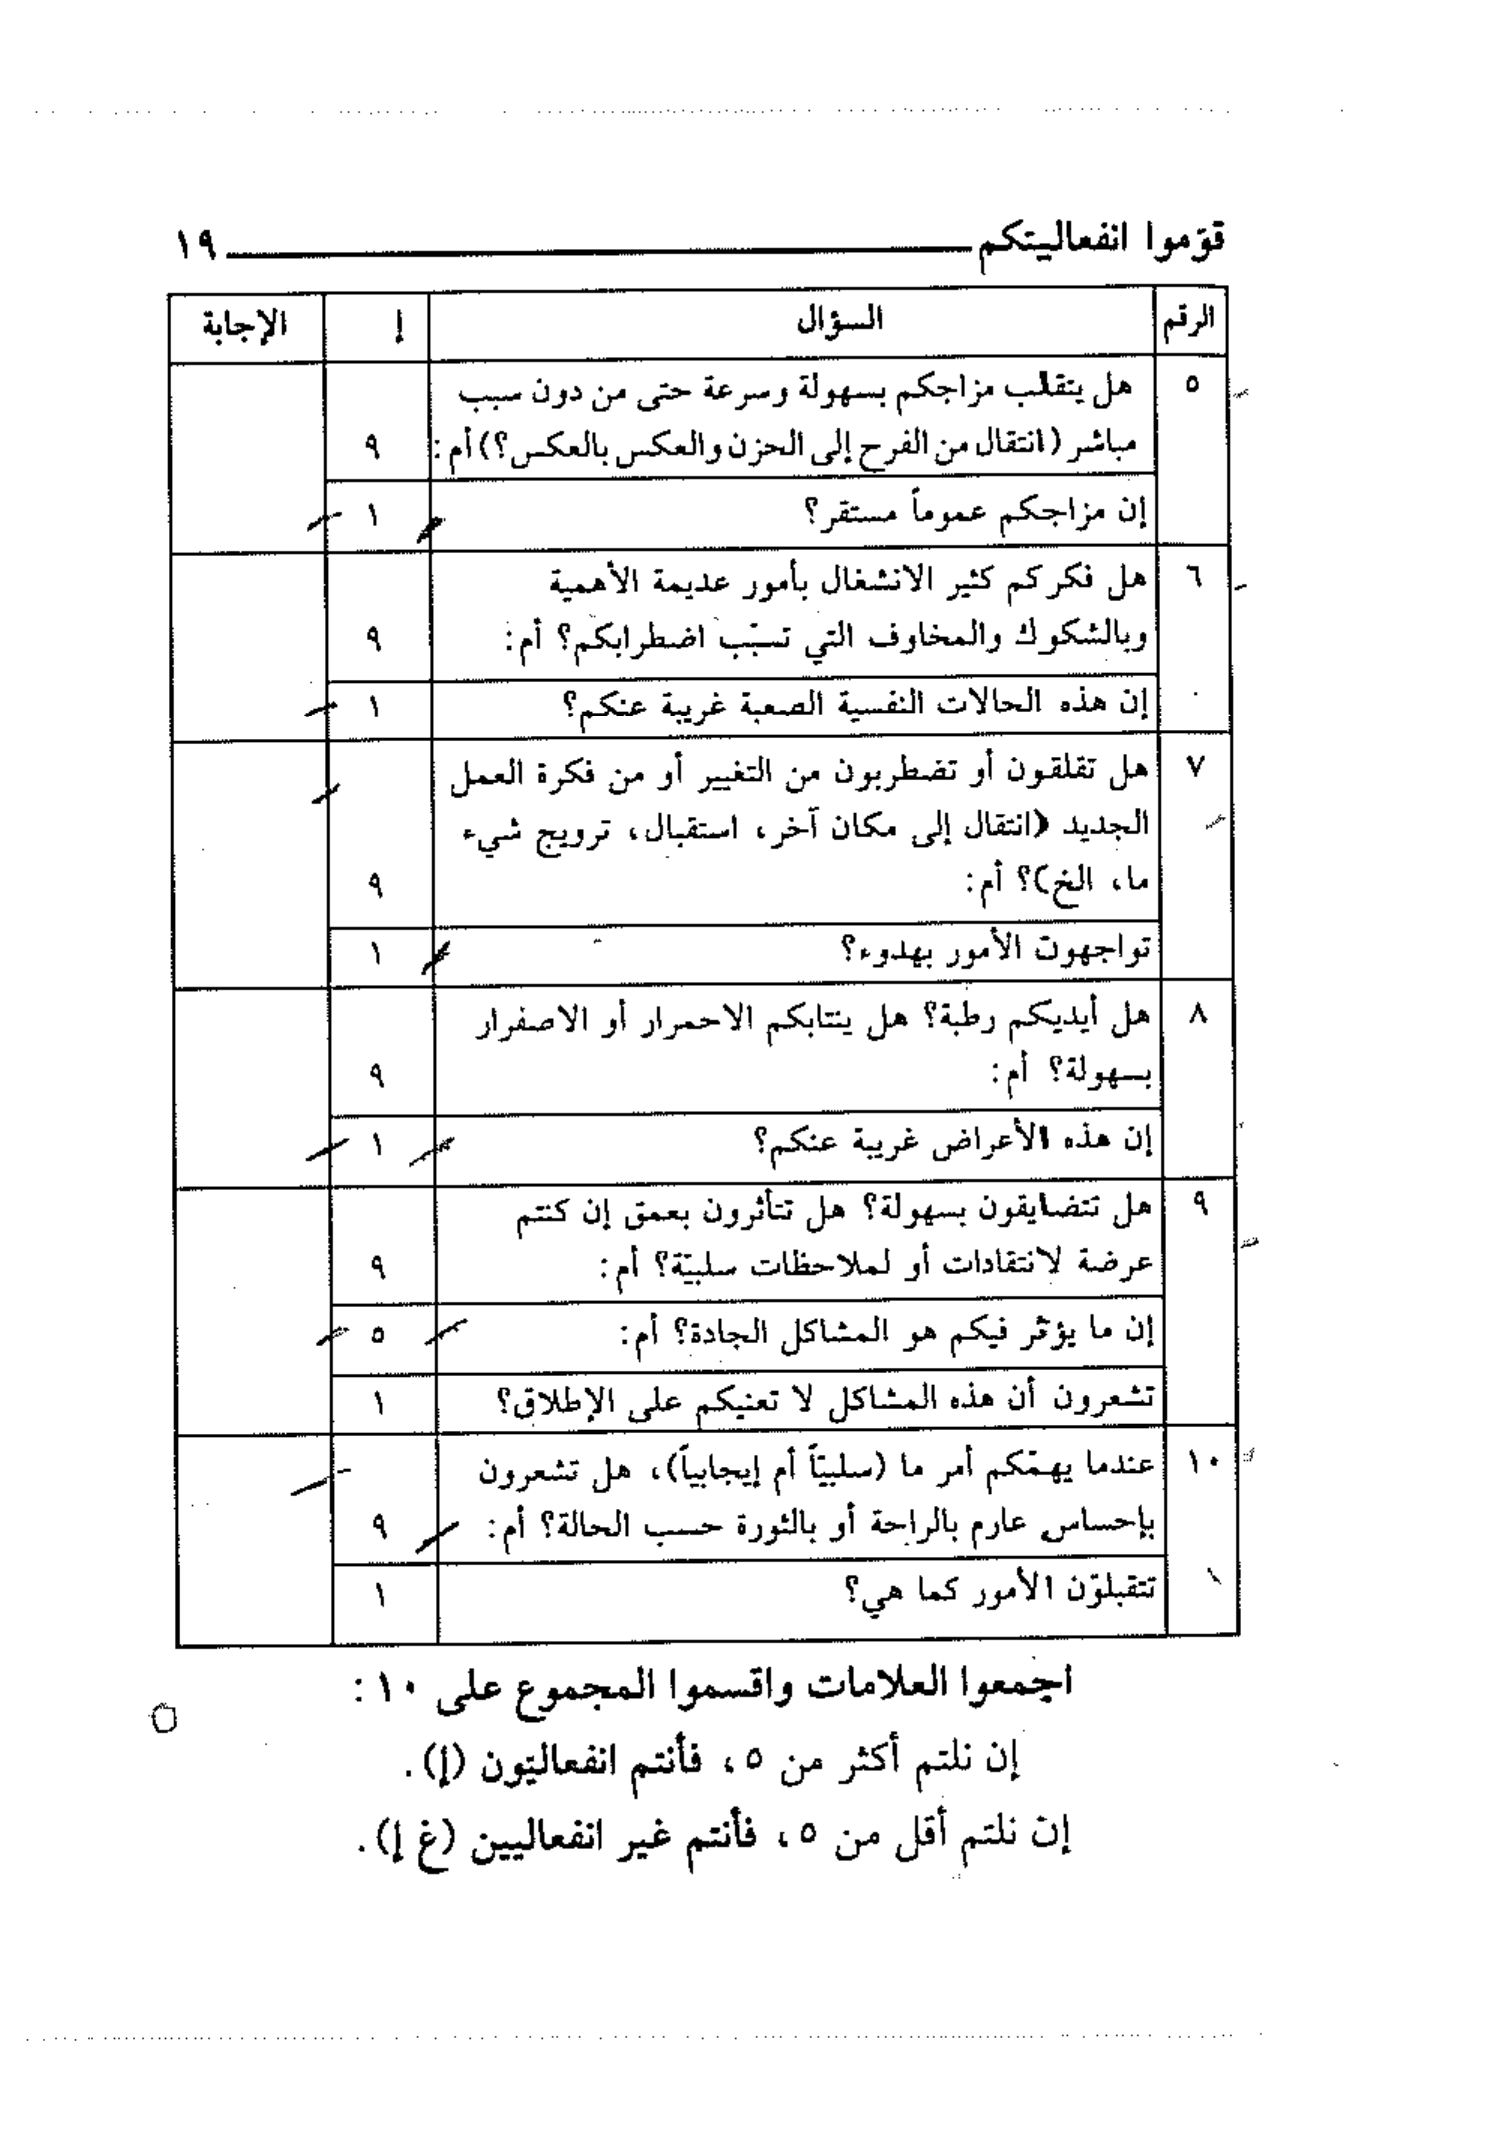 قوّموا انفعاليتكم ١٩
الرقم السؤال إ الإجابة
٥ هل يتقلب مزاجكم بسهولة وسرعة حتى من دون سبب
مباشر (انتقال من الفرح إلى الحزن والعكس بالعكس؟) أم: ٩
إن مزاجكم عموماً مستقر؟ ١
٦ هل فكركم كثير الانشغال بأمور عديمة الأهمية
وبالشكوك والمخاوف التي تسبّب اضطرابكم؟ أم: ٩
إن هذه الحالات النفسية الصعبة غريبة عنكم؟ ١
٧ هل تقلقون أو تضطربون من التغيير أو من فكرة العمل
الجديد (انتقال إلى مكان آخر، استقبال، ترويج شيء
ما، الخ)؟ أم: ٩
تواجهون الأمور بهدوء؟ ١
٨ هل أيديكم رطبة؟ هل ينتابكم الاحمرار أو الاصفرار
بسهولة؟ أم: ٩
إن هذه الأعراض غريبة عنكم؟ ١
٩ هل تتضايقون بسهولة؟ هل تتأثرون بعمق إن كنتم
عرضة لانتقادات أو لملاحظات سلبيّة؟ أم: ٩
إن ما يؤثر فيكم هو المشاكل الجادة؟ أم: ٥
تشعرون أن هذه المشاكل لا تعنيكم على الإطلاق؟ ١
١٠ عندما يهمّكم أمر ما (سلبيّاً أم إيجابياً)، هل تشعرون
بإحساس عارم بالراحة أو بالثورة حسب الحالة؟ أم: ٩
تتقبلوّن الأمور كما هي؟ ١
اجمعوا العلامات واقسموا المجموع على ١٠ :
إن نلتم أكثر من ٥، فأنتم انفعاليّون (إ).
إن نلتم أقل من ٥، فأنتم غير انفعاليين (غ إ).